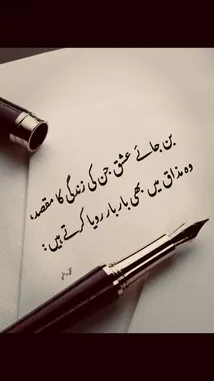 بن جائے عشق جن کی زندگی کا مقصد،
وہ مذاق میں بھی بار بار رویا کرتے ہیں :